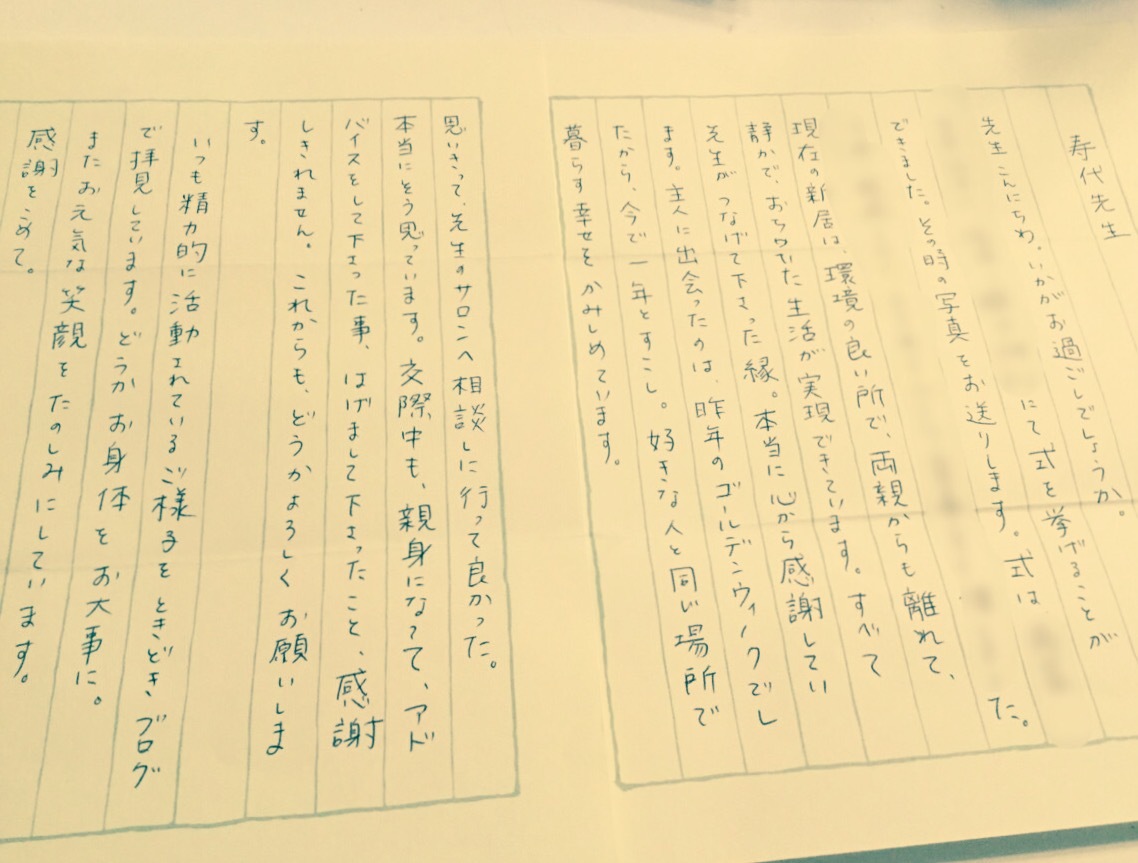 寿代先生
先生こんにちわ。いかがお過ごしでしょうか。
にて式を挙げることが
できました。その時の写真をお送りします。式は、
た。
現在の新居は、環境の良い所で、両親からも離れて、
静かで、おちついた生活が実現できています。すべて
先生がつなげて下さった縁。本当に心から感謝してい
ます。主人に出会ったのは、昨年のゴールデンウィークでし
たから、今で一年とすこし。好きな人と同じ場所で
暮らす幸せをかみしめています。
思いきって、先生のサロンへ相談しに行って良かった。
本当にそう思っています。交際中も、親身になって、アド
バイスをして下さった事、はげまして下さったこと、感謝
しきれません。これからも、どうかよろしくお願いしま
す。
いつも精力的に活動されているご様子をときどきブログ
で拝見しています。どうかお身体をお大事に。
またお元気な笑顔をたのしみにしています。
感謝をこめて。